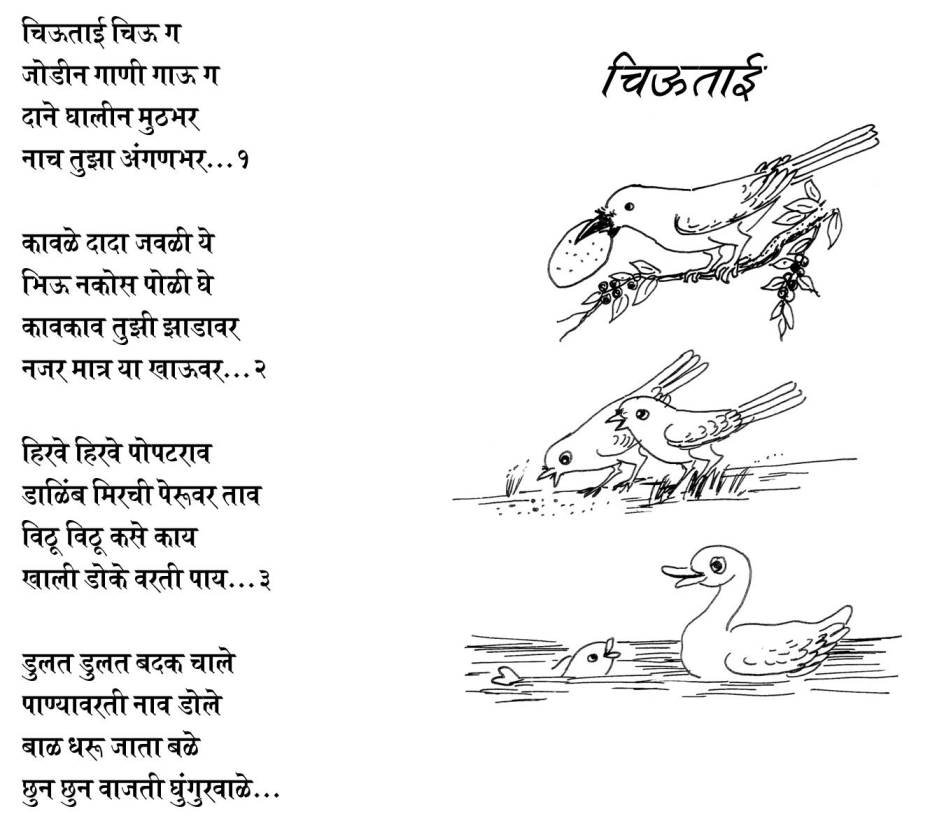 चिऊताई
चिऊताई चिऊ ग
जोडीन गाणी गाऊ ग
दाने घालीन मुठभर
नाच तुझा अंगणभर...१
कावळे दादा जवळी ये
भिऊ नकोस पोळी घे
कावकाव तुझी झाडावर
नजर मात्र या खाऊवर...२
हिरवे हिरवे पोपटराव
डाळिंब मिरची पेरूवर ताव
विठू विठू कसे काय
खाली डोके वरती पाय...३
डुलत डुलत बदक चाले
पाण्यावरती नाव डोले
बाळ धरू जाता बळे
छुन छुन वाजती घुंगुरवाळे...